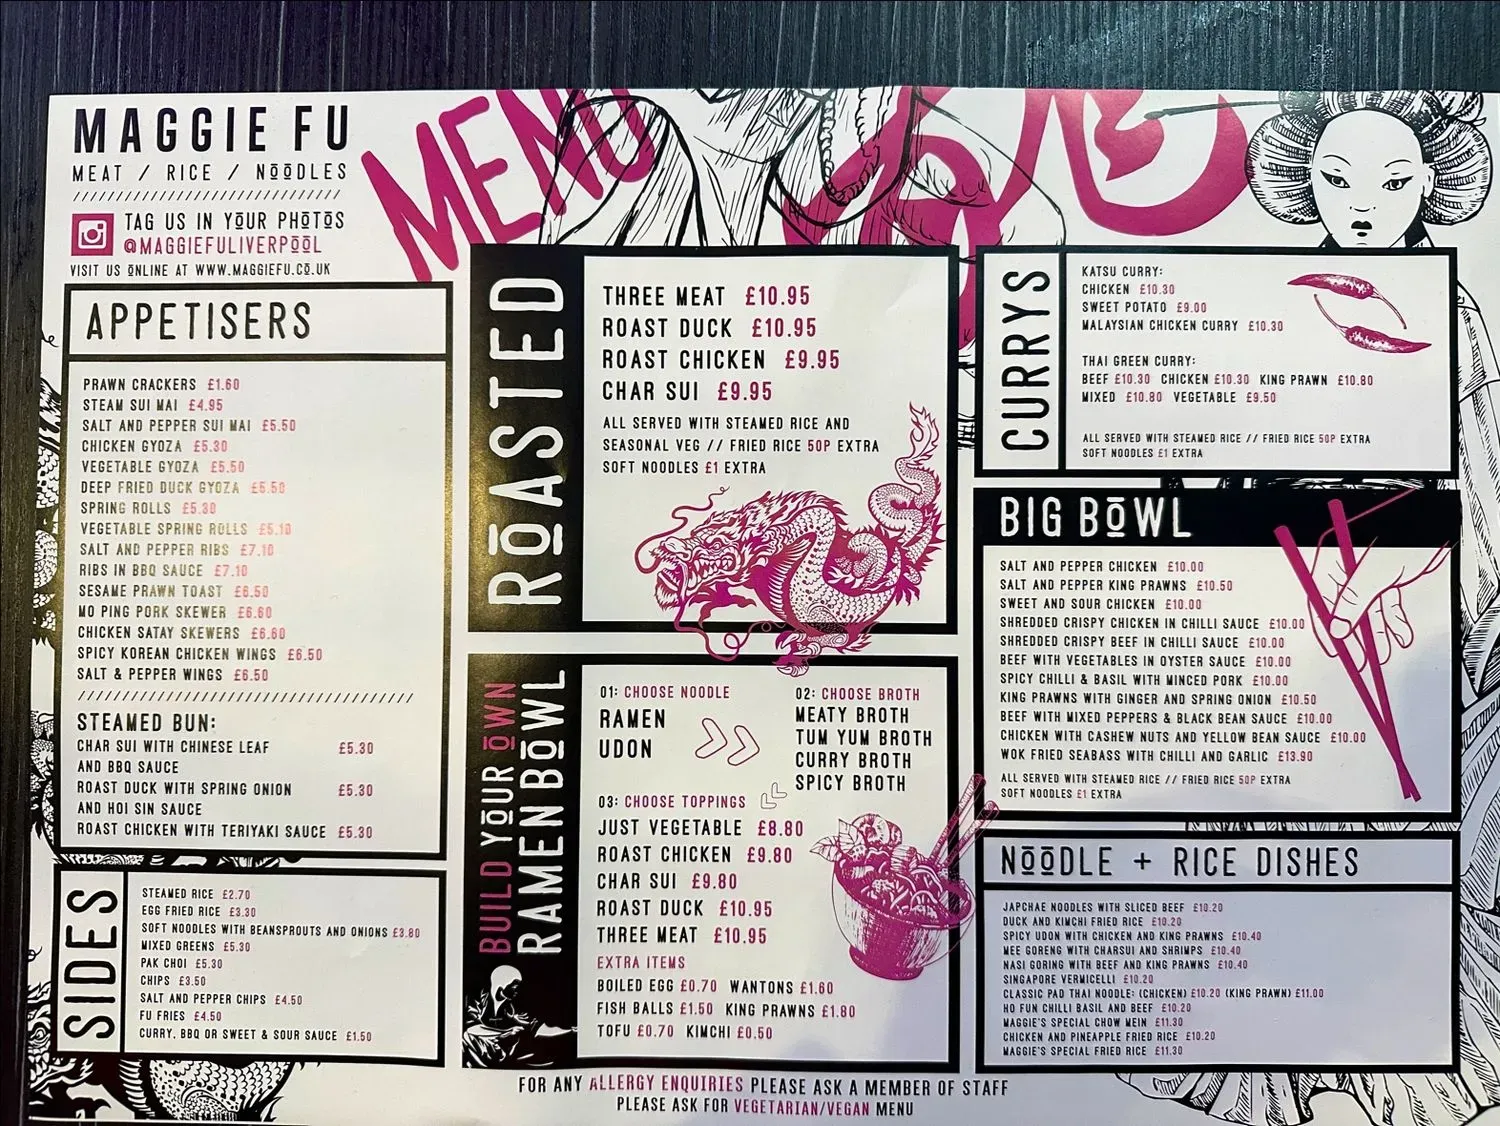 MAGGIE FU
MEAT / RICE / NŌŌDLES
TAG US IN YŌUR PHŌTŌS
@MAGGIEFULIVERPŌŌL
VISIT US ŌNLINE AT WWW.MAGGIEFU.CŌ.UK
MENU
APPETISERS
PRAWN CRACKERS £1.60
STEAM SUI MAI £4.95
SALT AND PEPPER SUI MAI £5.50
CHICKEN GYOZA £5.30
VEGETABLE GYOZA £5.50
DEEP FRIED DUCK GYOZA £5.50
SPRING ROLLS £5.30
VEGETABLE SPRING ROLLS £5.10
SALT AND PEPPER RIBS £7.10
RIBS IN BBQ SAUCE £7.10
SESAME PRAWN TOAST £6.50
MO PING PORK SKEWER £6.60
CHICKEN SATAY SKEWERS £6.60
SPICY KOREAN CHICKEN WINGS £6.50
SALT & PEPPER WINGS £6.50
STEAMED BUN:
CHAR SUI WITH CHINESE LEAF £5.30
AND BBQ SAUCE
ROAST DUCK WITH SPRING ONION £5.30
AND HOI SIN SAUCE
ROAST CHICKEN WITH TERIYAKI SAUCE £5.30
SIDES
STEAMED RICE £2.70
EGG FRIED RICE £3.30
SOFT NOODLES WITH BEANSPROUTS AND ONIONS £3.80
MIXED GREENS £5.30
PAK CHOI £5.30
CHIPS £3.50
SALT AND PEPPER CHIPS £4.50
FU FRIES £4.50
CURRY, BBQ OR SWEET & SOUR SAUCE £1.50
RŌASTED
THREE MEAT £10.95
ROAST DUCK £10.95
ROAST CHICKEN £9.95
CHAR SUI £9.95
ALL SERVED WITH STEAMED RICE AND
SEASONAL VEG // FRIED RICE 50P EXTRA
SOFT NOODLES £1 EXTRA
BUILD YŌUR ŌWN
RAMEN BŌWL
01: CHOOSE NOODLE
RAMEN
UDON
02: CHOOSE BROTH
MEATY BROTH
TUM YUM BROTH
CURRY BROTH
SPICY BROTH
03: CHOOSE TOPPINGS
JUST VEGETABLE £8.80
ROAST CHICKEN £9.80
CHAR SUI £9.80
ROAST DUCK £10.95
THREE MEAT £10.95
EXTRA ITEMS
BOILED EGG £0.70 WANTONS £1.60
FISH BALLS £1.50 KING PRAWNS £1.80
TOFU £0.70 KIMCHI £0.50
CURRYS
KATSU CURRY:
CHICKEN £10.30
SWEET POTATO £9.00
MALAYSIAN CHICKEN CURRY £10.30
THAI GREEN CURRY:
BEEF £10.30 CHICKEN £10.30 KING PRAWN £10.80
MIXED £10.80 VEGETABLE £9.50
ALL SERVED WITH STEAMED RICE // FRIED RICE 50P EXTRA
SOFT NOODLES £1 EXTRA
BIG BŌWL
SALT AND PEPPER CHICKEN £10.00
SALT AND PEPPER KING PRAWNS £10.50
SWEET AND SOUR CHICKEN £10.00
SHREDDED CRISPY CHICKEN IN CHILLI SAUCE £10.00
SHREDDED CRISPY BEEF IN CHILLI SAUCE £10.00
BEEF WITH VEGETABLES IN OYSTER SAUCE £10.00
SPICY CHILLI & BASIL WITH MINCED PORK £10.00
KING PRAWNS WITH GINGER AND SPRING ONION £10.50
BEEF WITH MIXED PEPPERS & BLACK BEAN SAUCE £10.00
CHICKEN WITH CASHEW NUTS AND YELLOW BEAN SAUCE £10.00
WOK FRIED SEABASS WITH CHILLI AND GARLIC £13.90
ALL SERVED WITH STEAMED RICE // FRIED RICE 50P EXTRA
SOFT NOODLES £1 EXTRA
NŌŌDLE + RICE DISHES
JAPCHAE NOODLES WITH SLICED BEEF £10.20
DUCK AND KIMCHI FRIED RICE £10.20
SPICY UDON WITH CHICKEN AND KING PRAWNS £10.40
MEE GORENG WITH CHARSUI AND SHRIMPS £10.40
NASI GORING WITH BEEF AND KING PRAWNS £10.40
SINGAPORE VERMICELLI £10.20
CLASSIC PAD THAI NOODLE: (CHICKEN) £10.20 (KING PRAWN) £11.00
HO FUN CHILLI BASIL AND BEEF £10.20
MAGGIE'S SPECIAL CHOW MEIN £11.30
CHICKEN AND PINEAPPLE FRIED RICE £10.20
MAGGIE'S SPECIAL FRIED RICE £11.30
FOR ANY ALLERGY ENQUIRIES PLEASE ASK A MEMBER OF STAFF
PLEASE ASK FOR VEGETARIAN/VEGAN MENU